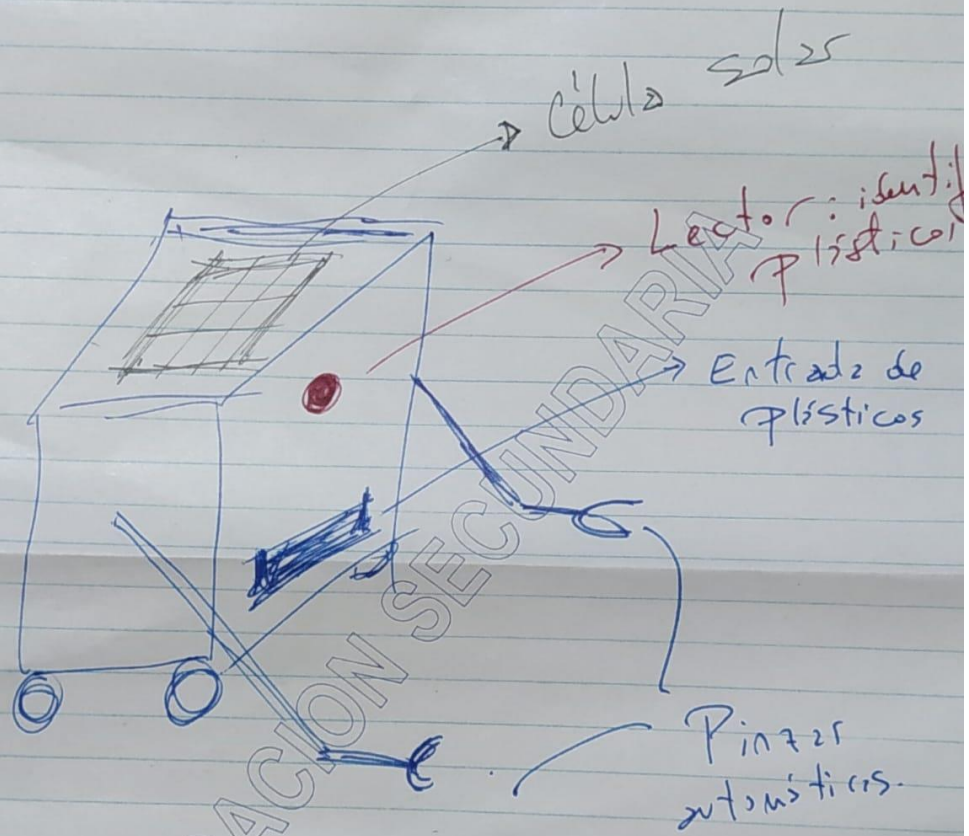 Célula solar
Lector: identif
plásticos
Entrada de
plásticos
Pinzas
automáticas.
ACION SECUNDARIA